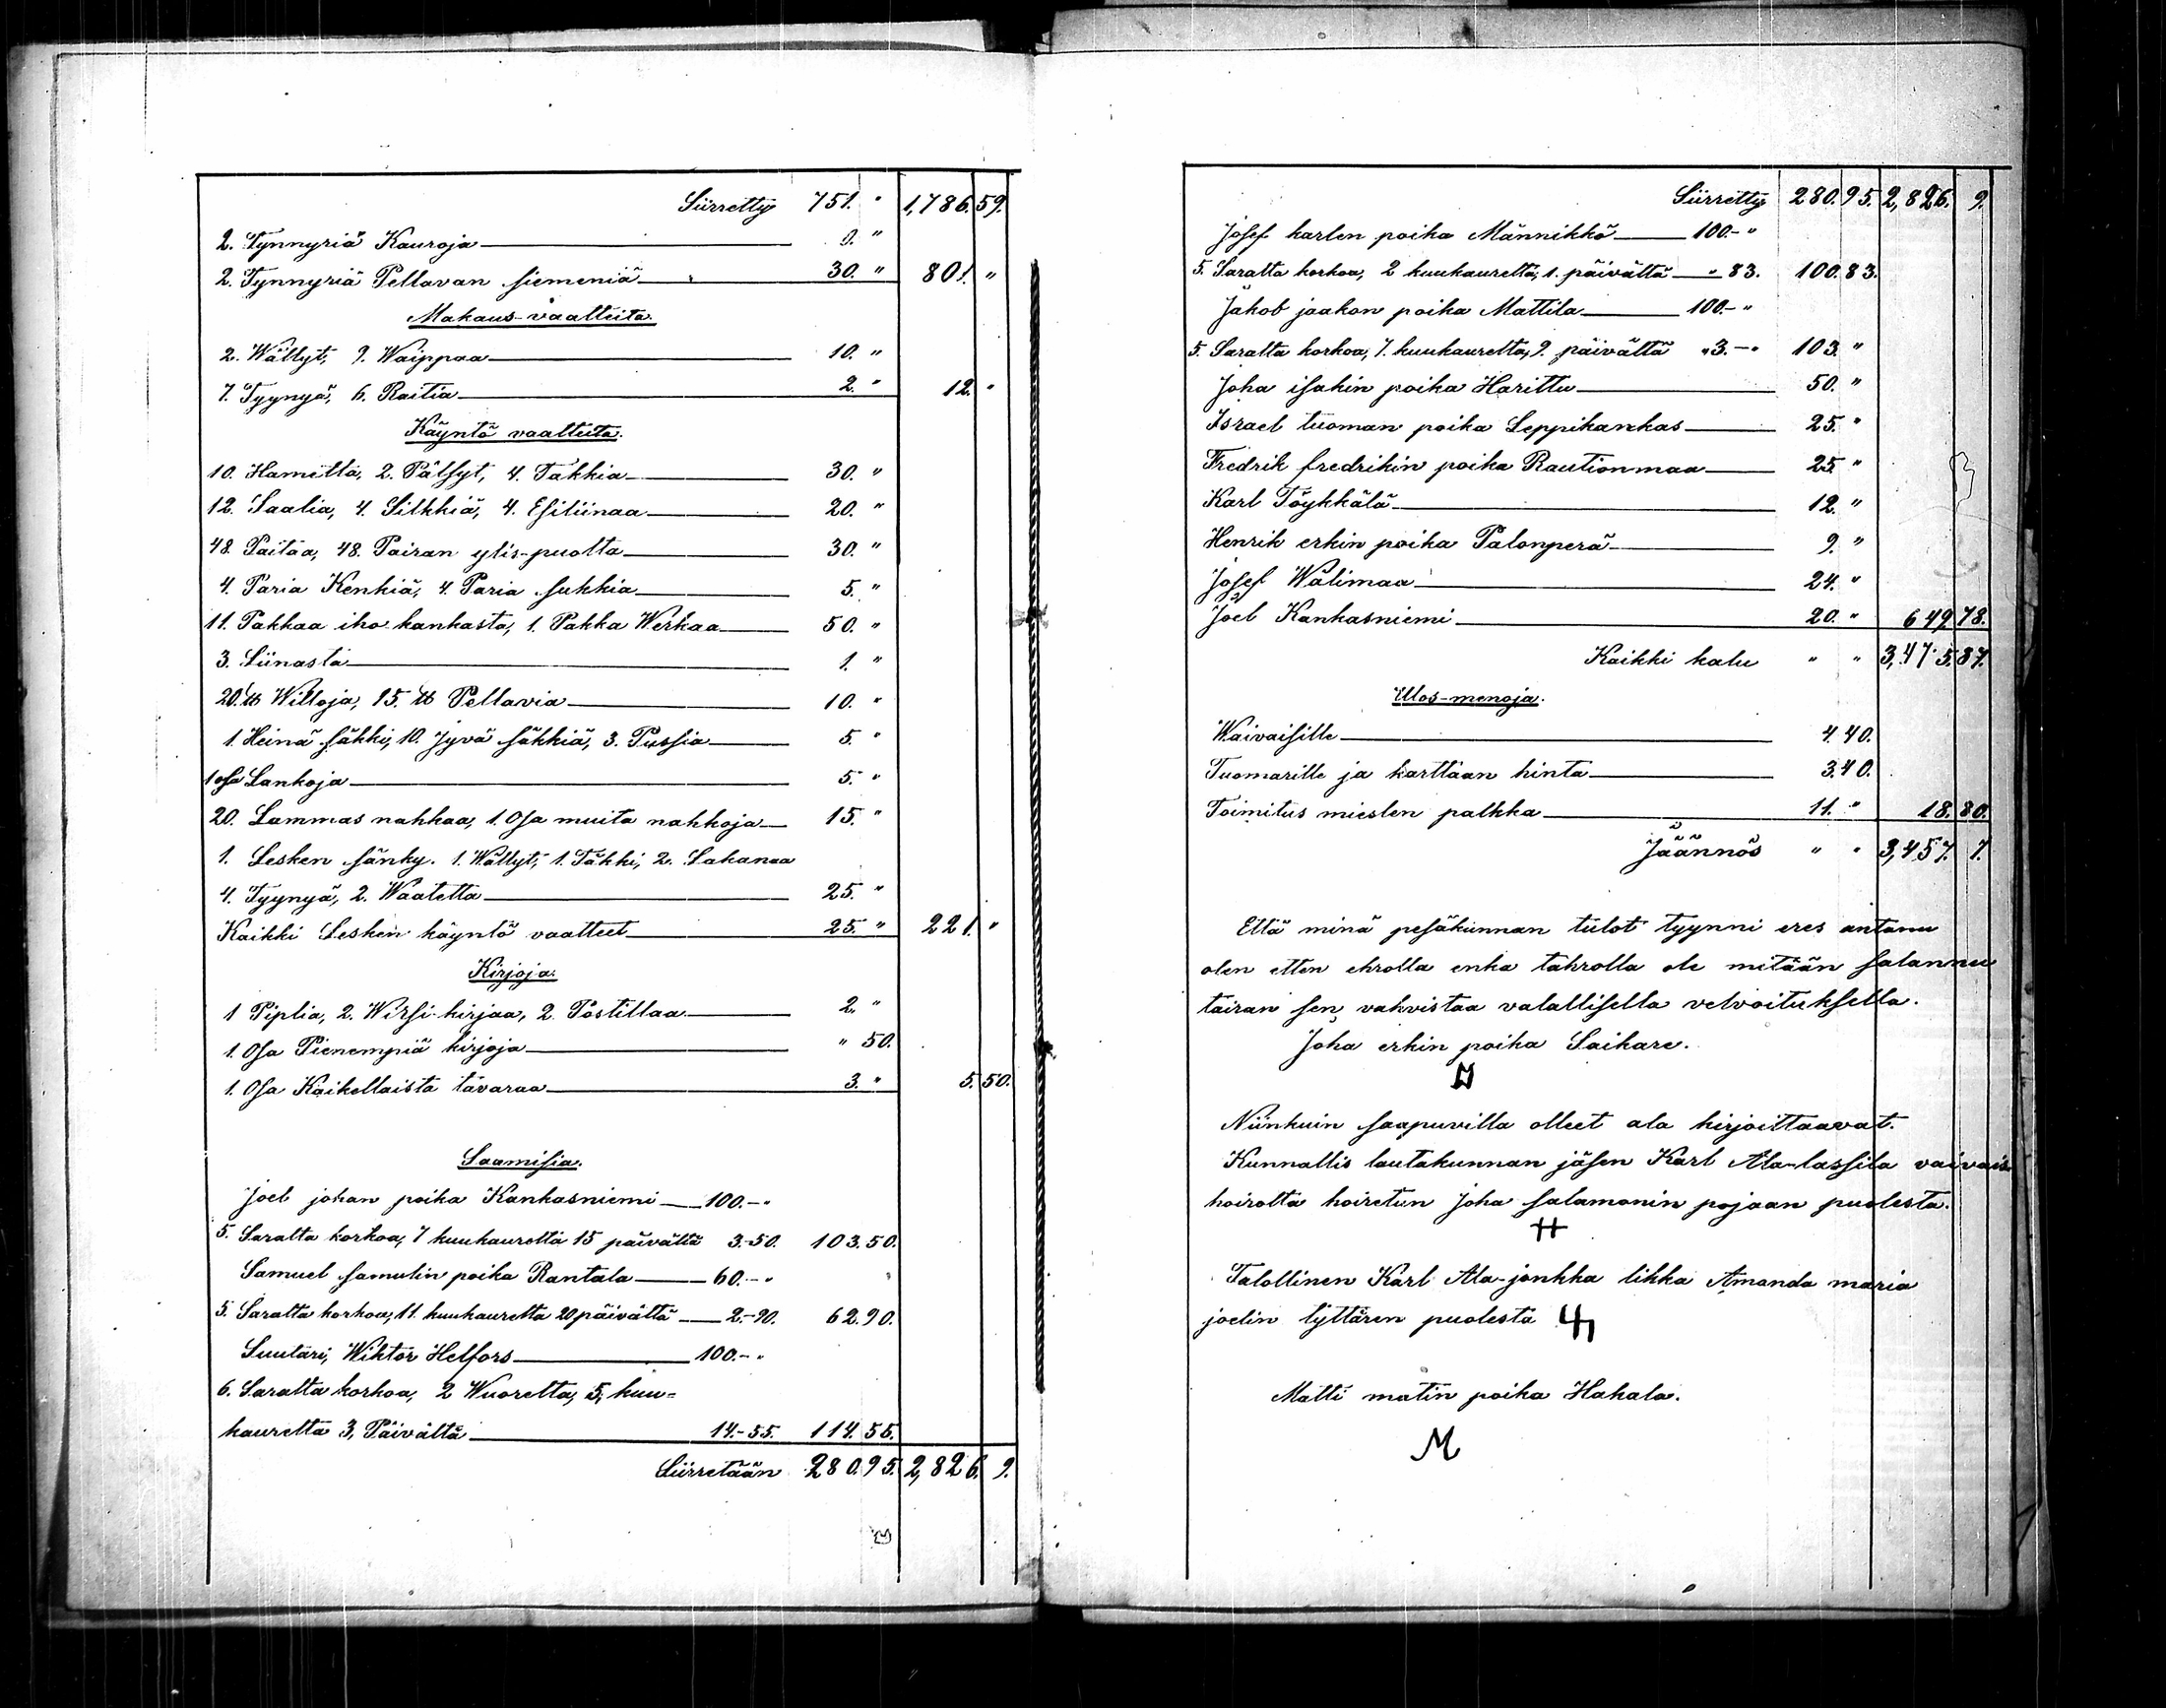 Siirretty 751. " 1,786. 59.
2. Tynnyriä Kauroja 9. "
2. Tynnyriä Pellavan siemeniä 30. " 801. "
Makaus-vaatteita.
2. Wällyt, 9. Waippaa 10. "
7. Tyynyä, 6. Raitia 2. " 12. "
Käyntö vaatteita.
10. Hametta, 2. Pälsyt, 4. Takkia 30. "
12. Saalia, 4. Silkkiä, 4. Esiliinaa 20. "
48. Paitaa, 48. Pairan ylis-puolta 30. "
4. Paria Kenkiä, 4. Paria sukkia 5. "
11. Pakkaa iho kankasta, 1. Pakka Werkaa 50. "
3. Liinasta 1. "
20. ℔ Willoja, 15. ℔ Pellavia 10. "
1. Heinä säkki, 10. Jyvä säkkiä, 3. Pussia 5. "
1 osa Lankoja 5. "
20. Lammas nahkaa, 1. Osa muita nahkoja 15. "
1. Lesken sänky. 1. Wällyt, 1. Täkki, 2. Lakanaa
4. Tyynyä, 2. Waatetta 25. "
Kaikki Lesken käyntö vaatteet 25. " 221. "
Kirjoja.
1 Piplia, 2. Wirsi-kirjaa, 2. Postillaa 2. "
1. Osa Pienempiä kirjoja " 50.
1. Osa Kaikellaista tavaraa 3. " 5. 50.
Saamisia.
Joel johan poika Kankasniemi 100.- "
5. Saralta korkoa, 7 kuukauretta 15 päivältä 3.-50. 103. 50.
Samuel samulin poika Rantala 60.- "
5. Saralta korkoa, 11. kuukauretta 20 päivältä 2.-90. 62. 90.
Suutari, Wiktor Helfors 100.- "
6. Saralta korkoa, 2 Wuoretta, 5, kuu=
kauretta 3, Päivältä 14.-55. 114. 55.
Siirretään 280. 95. 2,826. 9.
Siirretty 280. 95. 2,826. 9.
Josef karlen poika Männikkö 100.- "
5. Saralta korkoa, 2 kuukauretta, 1. päivältä " 83. 100. 83.
Jakob jaakon poika Mattila 100.- "
5. Saralta korkoa, 7. kuukauretta, 9. päivältä " 3.- " 103. "
Joha isakin poika Harittu 50. "
Israel tuoman poika Leppikankas 25. "
Fredrik fredrikin poika Rautionmaa 25 "
Karl Töykkälä 12. "
Henrik erkin poika Palonperä 9. "
Josef Wälimaa 24. "
Joel Kankasniemi 20. " 649. 78.
Kaikki kalu " " 3,475. 87.
Ulos-menoja.
Waivaisille 4. 40.
Tuomarille ja karttaan hinta 3. 40.
Toimitus miesten palkka 11. " 18. 80.
Jäännös " " 3,457. 7.
Että minä pesäkunnan tulot tyynni eres antanu
olen etten ehrolla enka tahrolla ole mitään salannu
tairan sen vahvistaa valallisella velvoituksella.
Joha erkin poika Saikare.
Niinkuin saapuvilla olleet ala kirjoittaavat.
Kunnallis lautakunnan jäsen Karl Ala-lassila vaivais
hoirolta hoiretun Joha salamonin pojaan puolesta.
Talollinen Karl Ala-jonkka likka Amanda maria
joelin tyttären puolesta
Matti matin poika Hakala.
M